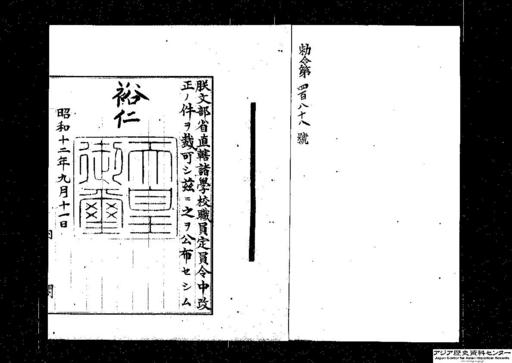 勅令第四百八十八號
朕文部省直轄諸學校職員定員令中改
正ノ件ヲ裁可シ茲ニ之ヲ公布セシム
裕仁
天皇
御璽
昭和十二年九月十一日
内閣
アジア歴史資料センター
Japan Center for Asian Historical Records